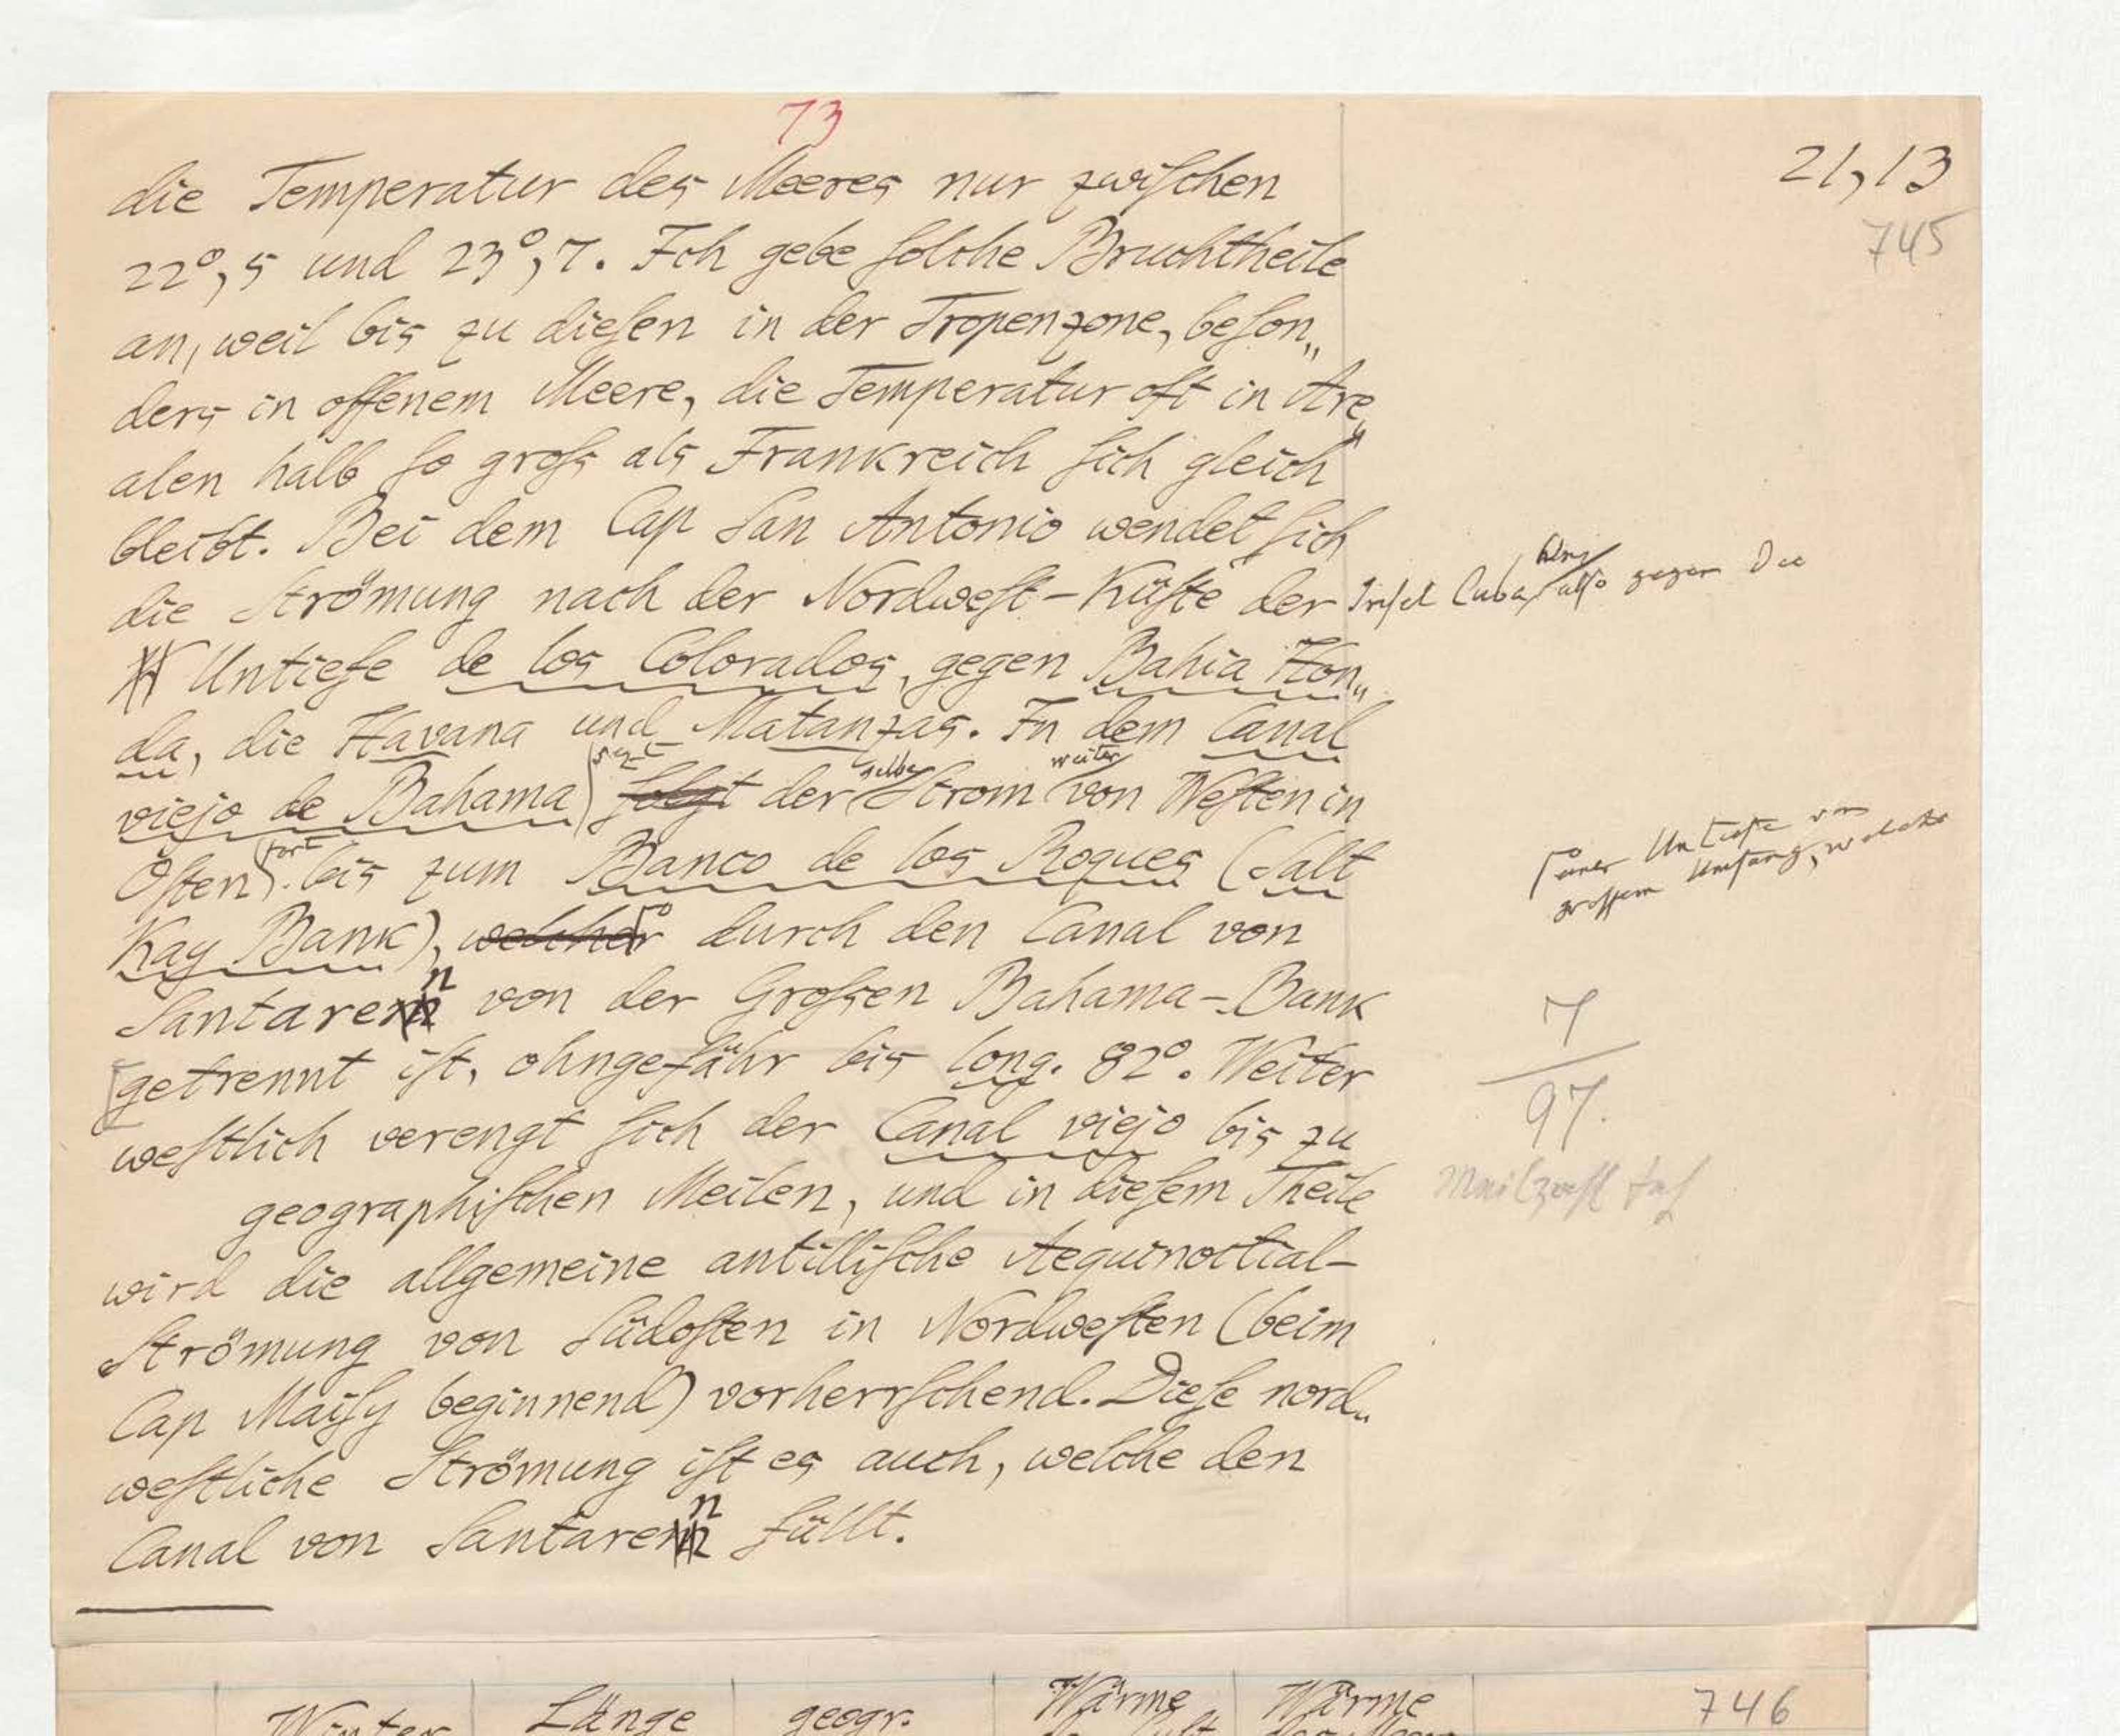 73
21,13
745
die Temperatur des Meeres nur zwischen
22°,5 und 23°,7. Ich gebe solche Bruchtheile
an, weil bis zu diesen in der Tropenzone, beson„
ders in offenem Meere, die Temperatur oft in Are„
alen halb so gross als Frankreich sich gleich
bleibt. Bei dem Cap San Antonio wendet sich
die Strömung nach der Nordwest-Küste der Insel Cuba, also gegen die
Untiefe de los Colorados, gegen Bahia Hon„
da, die Havana und Matanzas. In dem Canal
setzt selbe weiter
viejo de Bahama folgt der Strom von Westen in
fort
Osten bis zum Banco de los Roques (Salt
einer Untiefe von
grossem Umfang, welche
Kay Bank), welcher durch den Canal von
n
Santaren von der Grossen Bahama-Bank
getrennt ist, ohngefähr bis long. 82°. Weiter
westlich verengt sich der Canal viejo bis zu
geographischen Meilen, und in diesem Theile
7
97.
wird die allgemeine antillische Aequinoctial-
Strömung von Südosten in Nordwesten (beim
Cap Maisy beginnend) vorherrschend. Diese nord„
westliche Strömung ist es auch, welche den
n
Canal von Santaren füllt.
Winter Länge geogr. Wärme Wärme 746